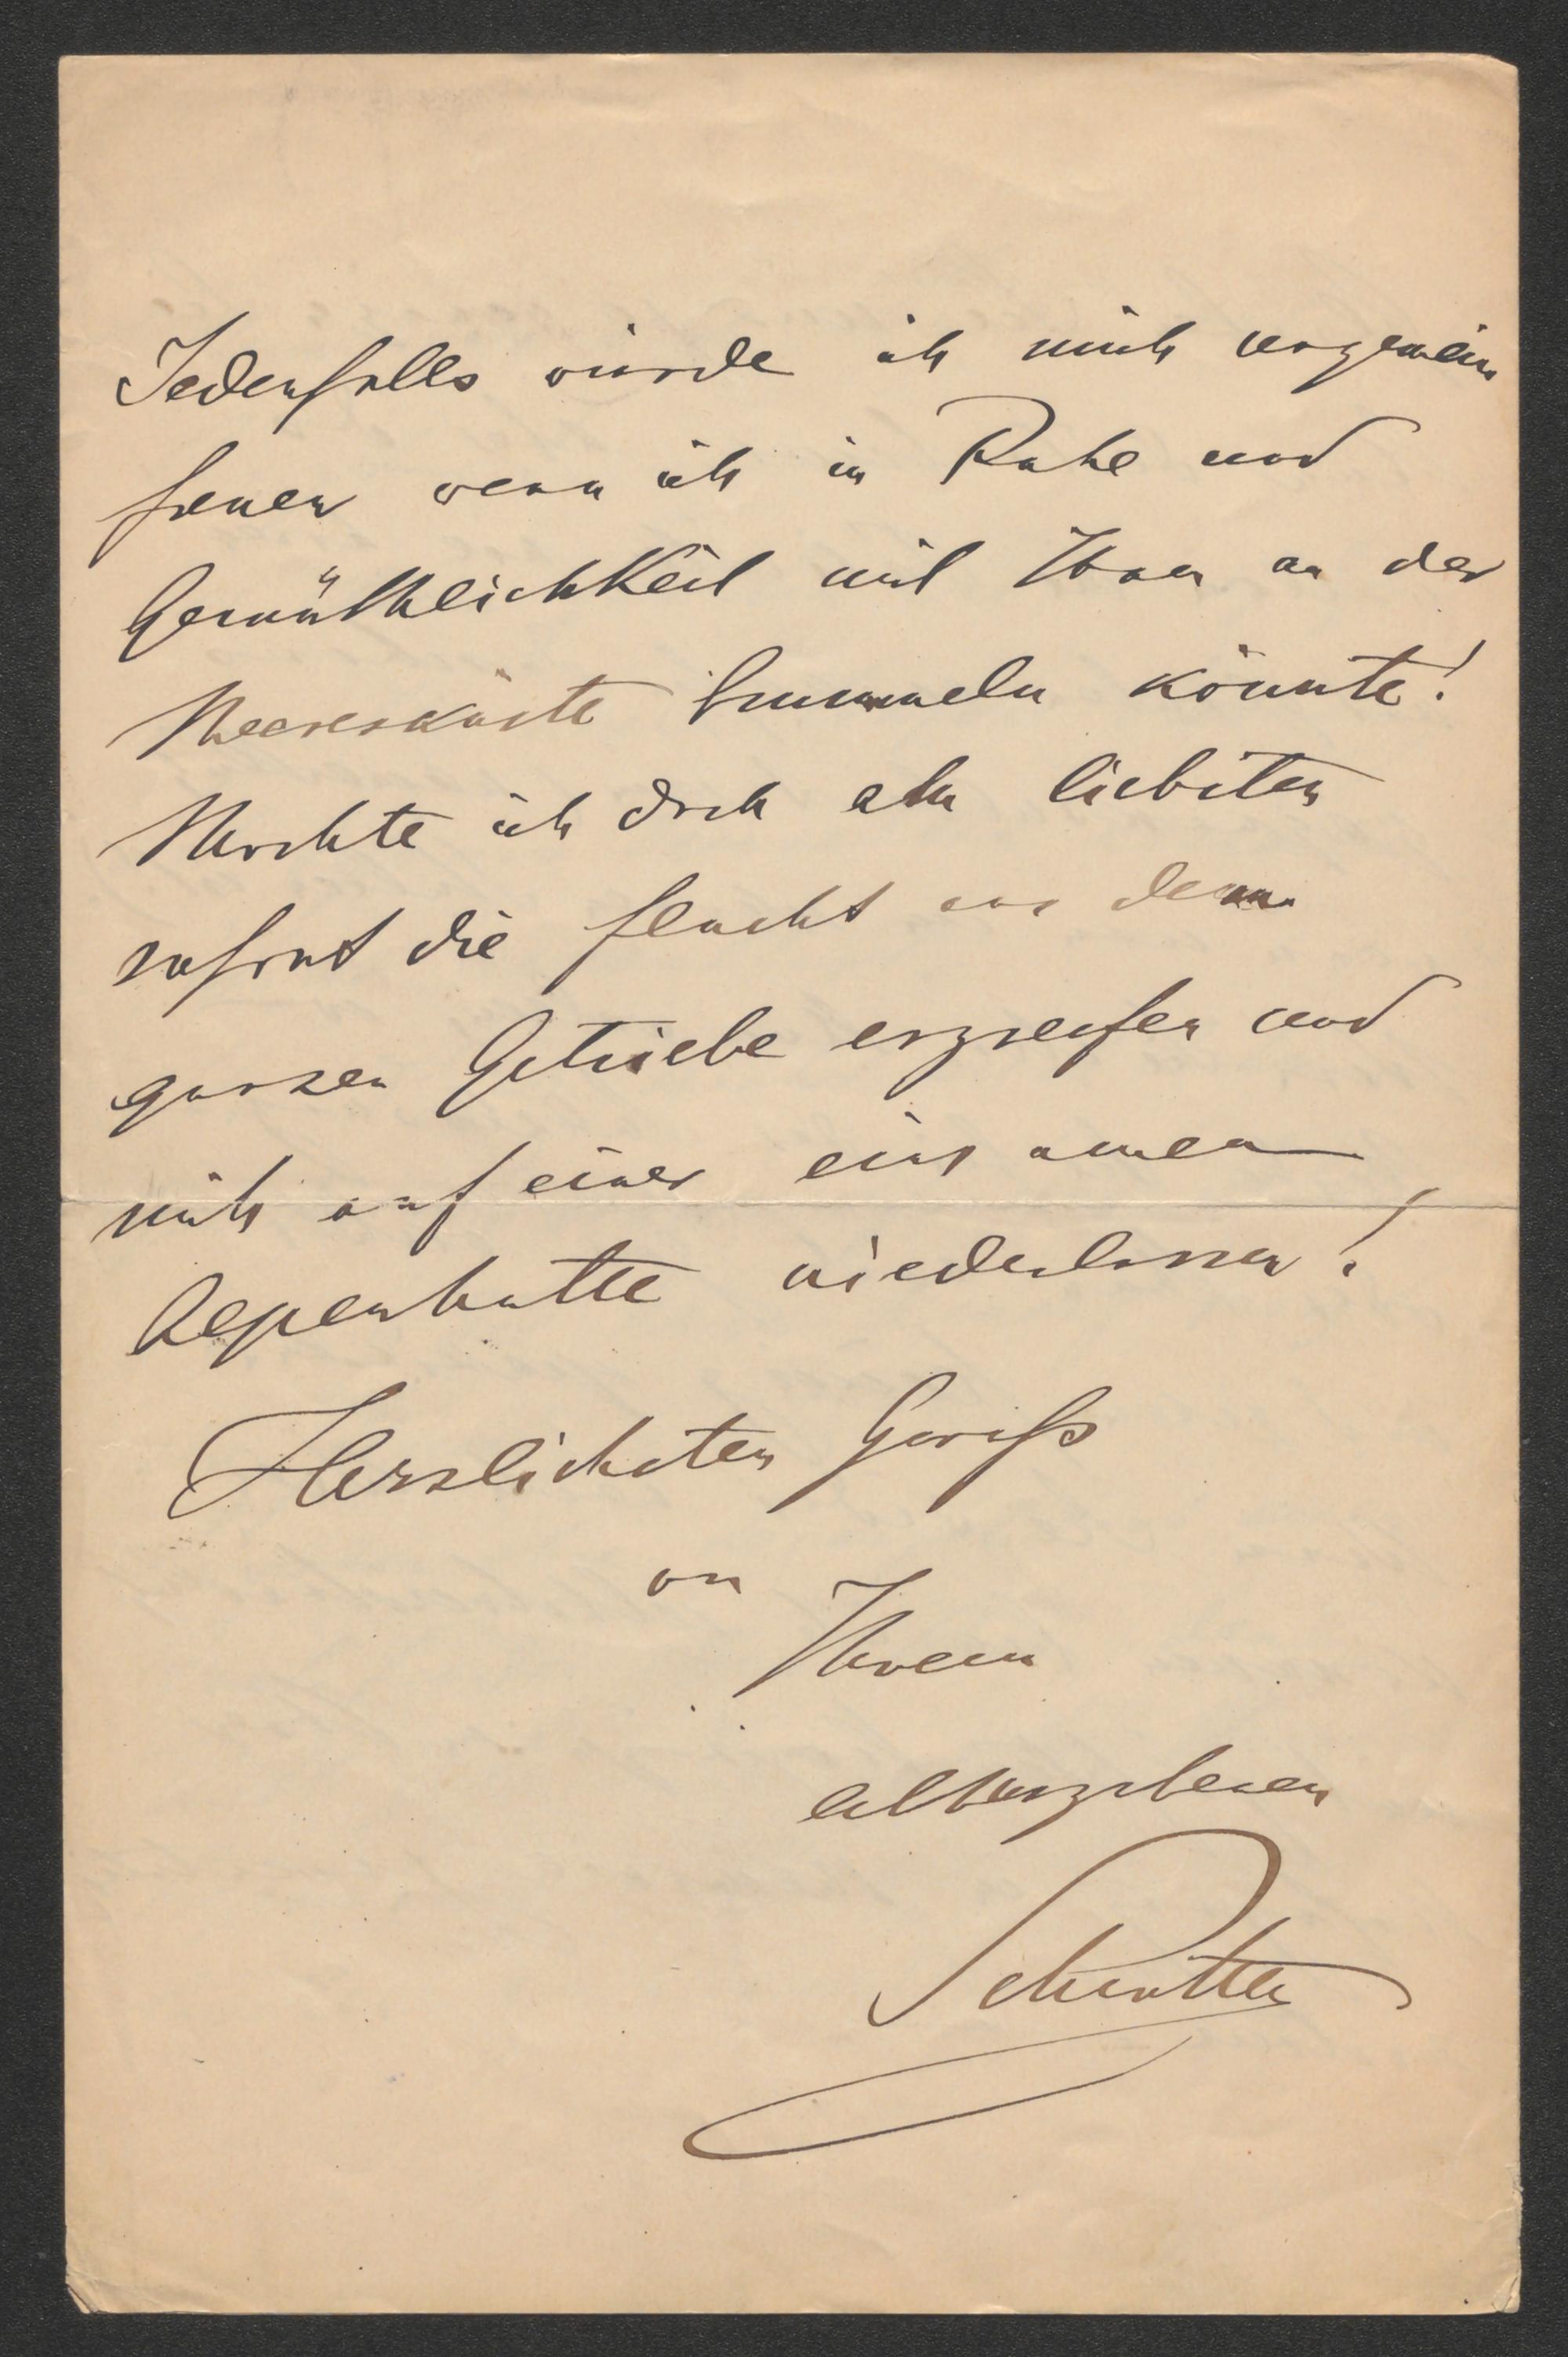 Jedenfalls würde ich mich ungemein
freuen wenn ich in Ruhe und
Gemüthlichkeit mit Ihnen an der
Meeresküste bummeln könnte!
Möchte ich doch am liebsten
sofort die Flucht aus dem
ganzen Getriebe ergreifen und
mich auf einer einsamen
Alpenhütte niederlassen!
Herzlichsten Gruß
von
Ihrem
altergebenen